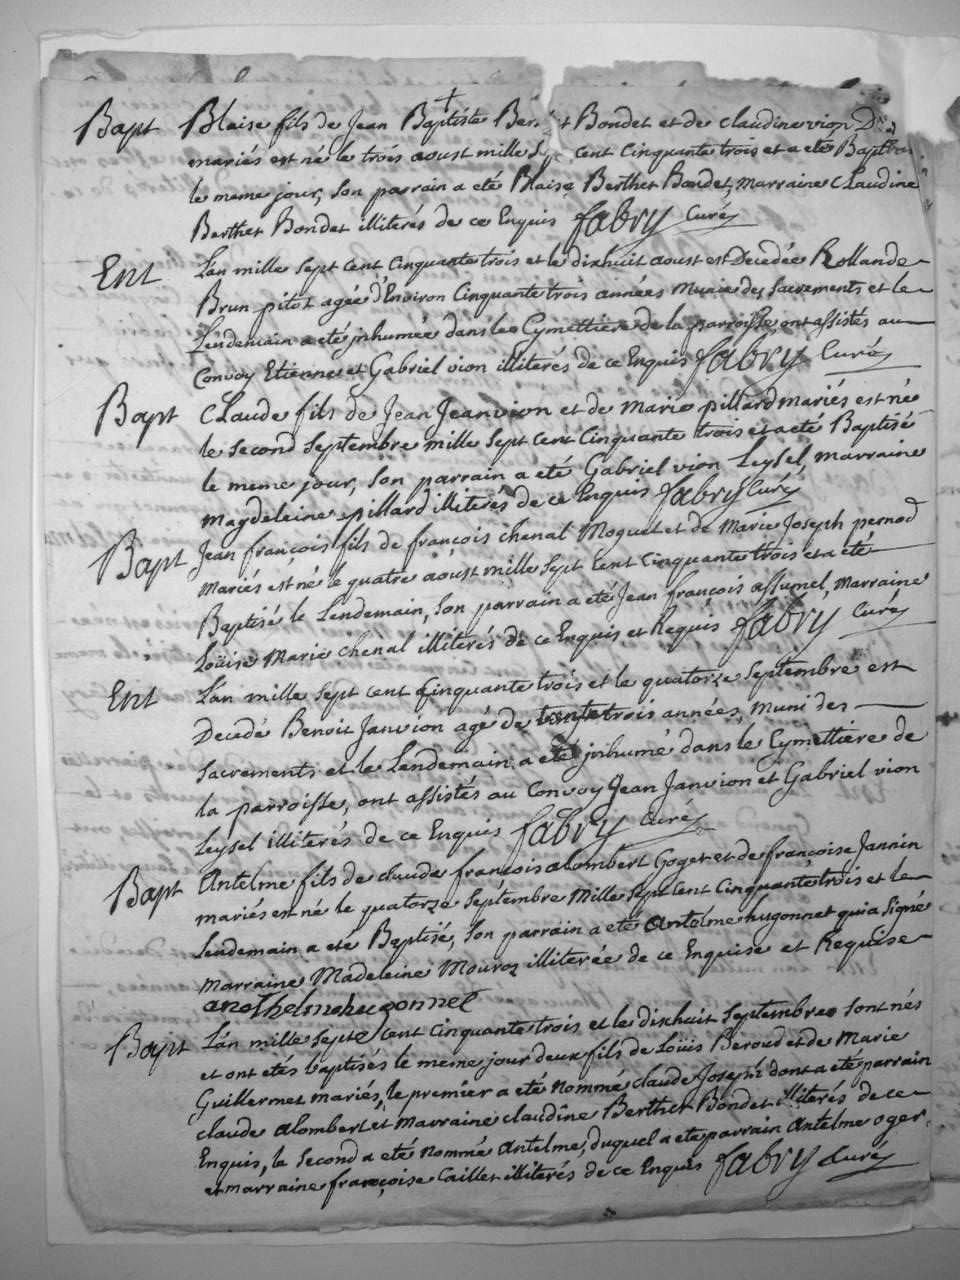 Bapt Blaise fils de Jean Baptiste Bert Bondet et de claudine vion
mariés est né le trois aoust mille sept cent cinquante trois et a eté Baptisé
le meme jour, son parrain a eté Blaise Berthet Bondet, marraine Claudine
Berthet Bondet illiterés de ce Enquis fabry Curé
Ent Lan mille sept cent cinquante trois et le dixhuit aoust est Decedée Rollande
Brun pitot agée d'Environ Cinquante trois années Munie des Sacrements et le
Lendemain a eté inhumée dans le Cymettiere de la parroisse, ont assistés au
Convoy Etienne et Gabriel vion illiterés de ce Enquis fabry Curé
Bapt Claude fils de Jean Jeanvion et de marie pillard mariés est né
le second septembre mille sept cent cinquante trois et a eté Baptisé
le meme jour, son parrain a eté Gabriel vion Leysel, marraine
Magdeleine pillard illiterés de ce Enquis fabry Curé
Bapt Jean françois fils de françois chenal Moquet et de Marie Joseph pernod
Mariés est né le quatre aoust mille sept cent cinquante trois et a eté
Baptisé le Lendemain, son parrain a eté Jean françois assumel, marraine
Loüise Marie chenal illiterés de ce Enquis et Requis fabry Curé
Ent Lan mille sept cent cinquante trois et le quatorze septembre est
Decedé Benoit Janvion agé de trente trois années, muni des
sacrements et le Lendemain a eté jnhumé dans le Cymettiere de
la parroisse, ont assistés au Convoy Jean Janvion et Gabriel vion
Leysel illiterés de ce Enquis fabry Curé
Bapt Antelme fils de claude françois alombert Goget et de françoise Jannin
mariés est né le quatorze septembre Mille sept cent cinquante trois et le
Lendemain a eté Baptisé, son parrain a eté Antelme hugonnet qui a signé
marraine Madeleine Mouroz illiterée de ce Enquise et Requise
anosthelme hugonnet
Bapt L'an mille sept cent cinquante trois et le dixhuit septembre sont nés
et ont etés baptisés le meme jour deux fils de Loüis Beroud et de Marie
Guillermet mariés, le premier a eté nommé claude Joseph dont a eté parrain
claude alombert et marraine claudine Berthet Bondet illiterés de ce
Enquis, le second a eté nommé Antelme, duquel a eté parrain Antelme oger
et marraine françoise Caillet illiterés de ce Enquis fabry Curé